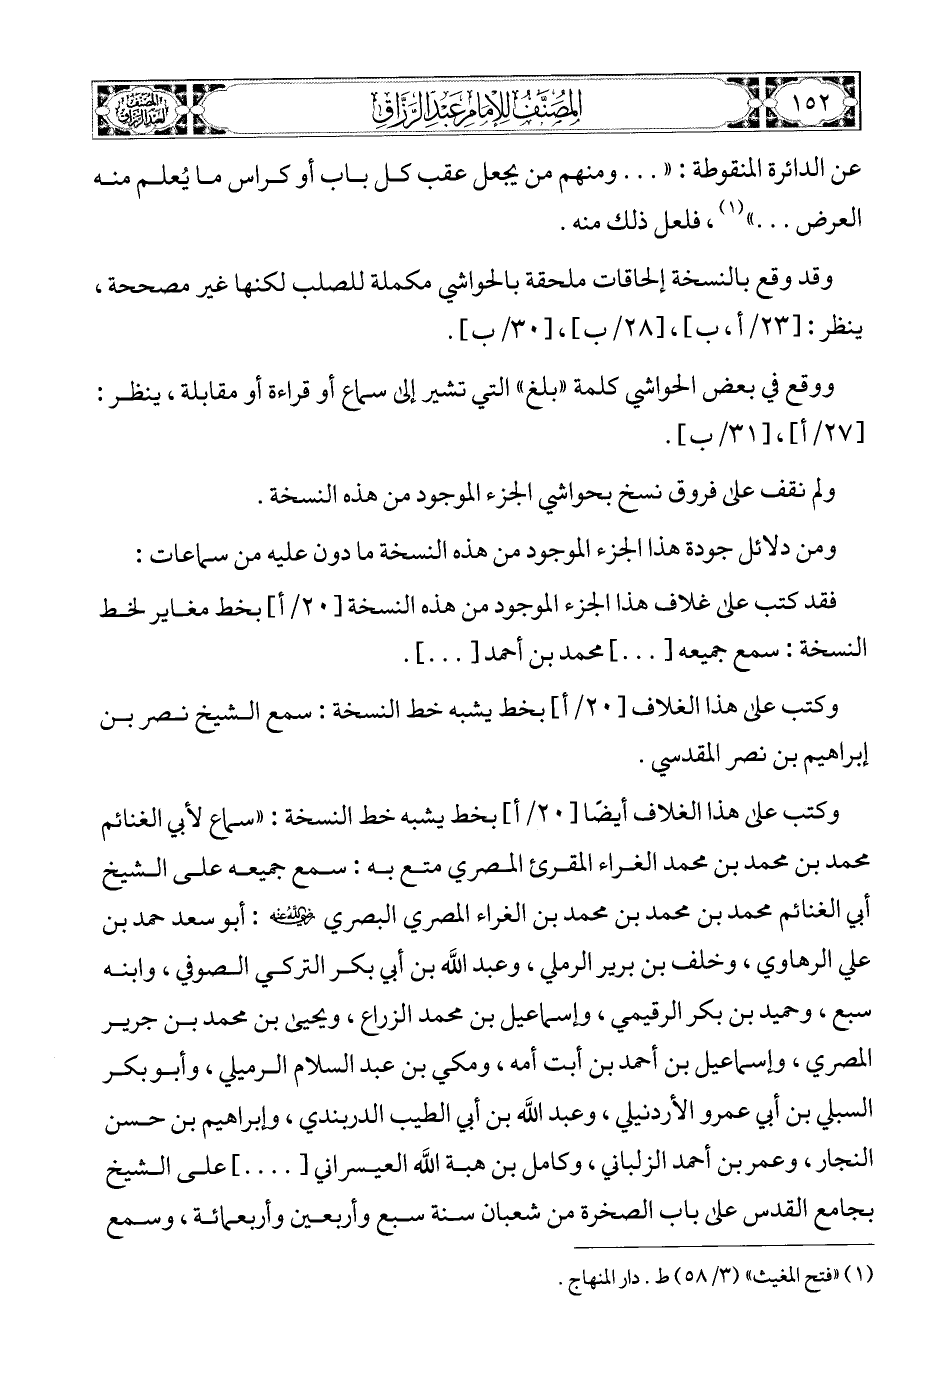 ١٥٢
المصنف للإمام عبد الرزاق
المصنف
لعبد الرزاق
عن الدائرة المنقوطة : « . . . ومنهم من يجعل عقب كل باب أو كراس ما يُعلم منه
العرض . . .»(١) ، فلعل ذلك منه .
وقد وقع بالنسخة إلحاقات ملحقة بالحواشي مكملة للصلب لكنها غير مصححة ،
ينظر : [٢٣/ أ، ب] ، [٢٨/ ب] ، [٣٠/ ب] .
ووقع في بعض الحواشي كلمة «بلغ» التي تشير إلى سماع أو قراءة أو مقابلة ، ينظر :
[٢٧/ أ] ، [٣١/ ب] .
ولم نقف على فروق نسخ بحواشي الجزء الموجود من هذه النسخة .
ومن دلائل جودة هذا الجزء الموجود من هذه النسخة ما دون عليه من سماعات :
فقد كتب على غلاف هذا الجزء الموجود من هذه النسخة [٢٠/ أ] بخط مغاير لخط
النسخة : سمع جميعه [ . . . ] محمد بن أحمد [ . . . ] .
وكتب على هذا الغلاف [٢٠/ أ] بخط يشبه خط النسخة : سمع الشيخ نصر بن
إبراهيم بن نصر المقدسي .
وكتب على هذا الغلاف أيضًا [٢٠/ أ] بخط يشبه خط النسخة : «سماع لأبي الغنائم
محمد بن محمد بن محمد الغراء المقرئ المصري متع به : سمع جميعه على الشيخ
أبي الغنائم محمد بن محمد بن محمد بن الغراء المصري البصري رضي الله عنه : أبو سعد حمد بن
علي الرهاوي ، وخلف بن برير الرملي ، وعبد الله بن أبي بكر التركي الصوفي ، وابنه
سبع ، وحميد بن بكر الرقيمي ، وإسماعيل بن محمد الزراع ، ويحيى بن محمد بن جرير
المصري ، وإسماعيل بن أحمد بن أبت أمه ، ومكي بن عبد السلام الرميلي ، وأبو بكر
السبلي بن أبي عمرو الأردنيلي ، وعبد الله بن أبي الطيب الدربندي ، وإبراهيم بن حسن
النجار ، وعمر بن أحمد الزلباني ، وكامل بن هبة الله العيسراني [ . . . . ] على الشيخ
بجامع القدس على باب الصخرة من شعبان سنة سبع وأربعين وأربعمائة ، وسمع
(١) «فتح المغيث» (٣/ ٥٨) ط . دار المنهاج .